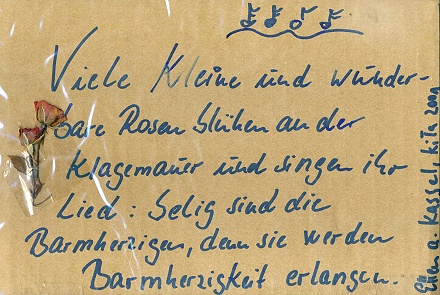 Viele Kleine und wunder-
bare Rosen blühen an der
Klagemauer und singen ihr
Lied: Selig sind die
Barmherzigen, denn sie werden
Barmherzigkeit erlangen.
Eltern a. Kassel, Kita 2009